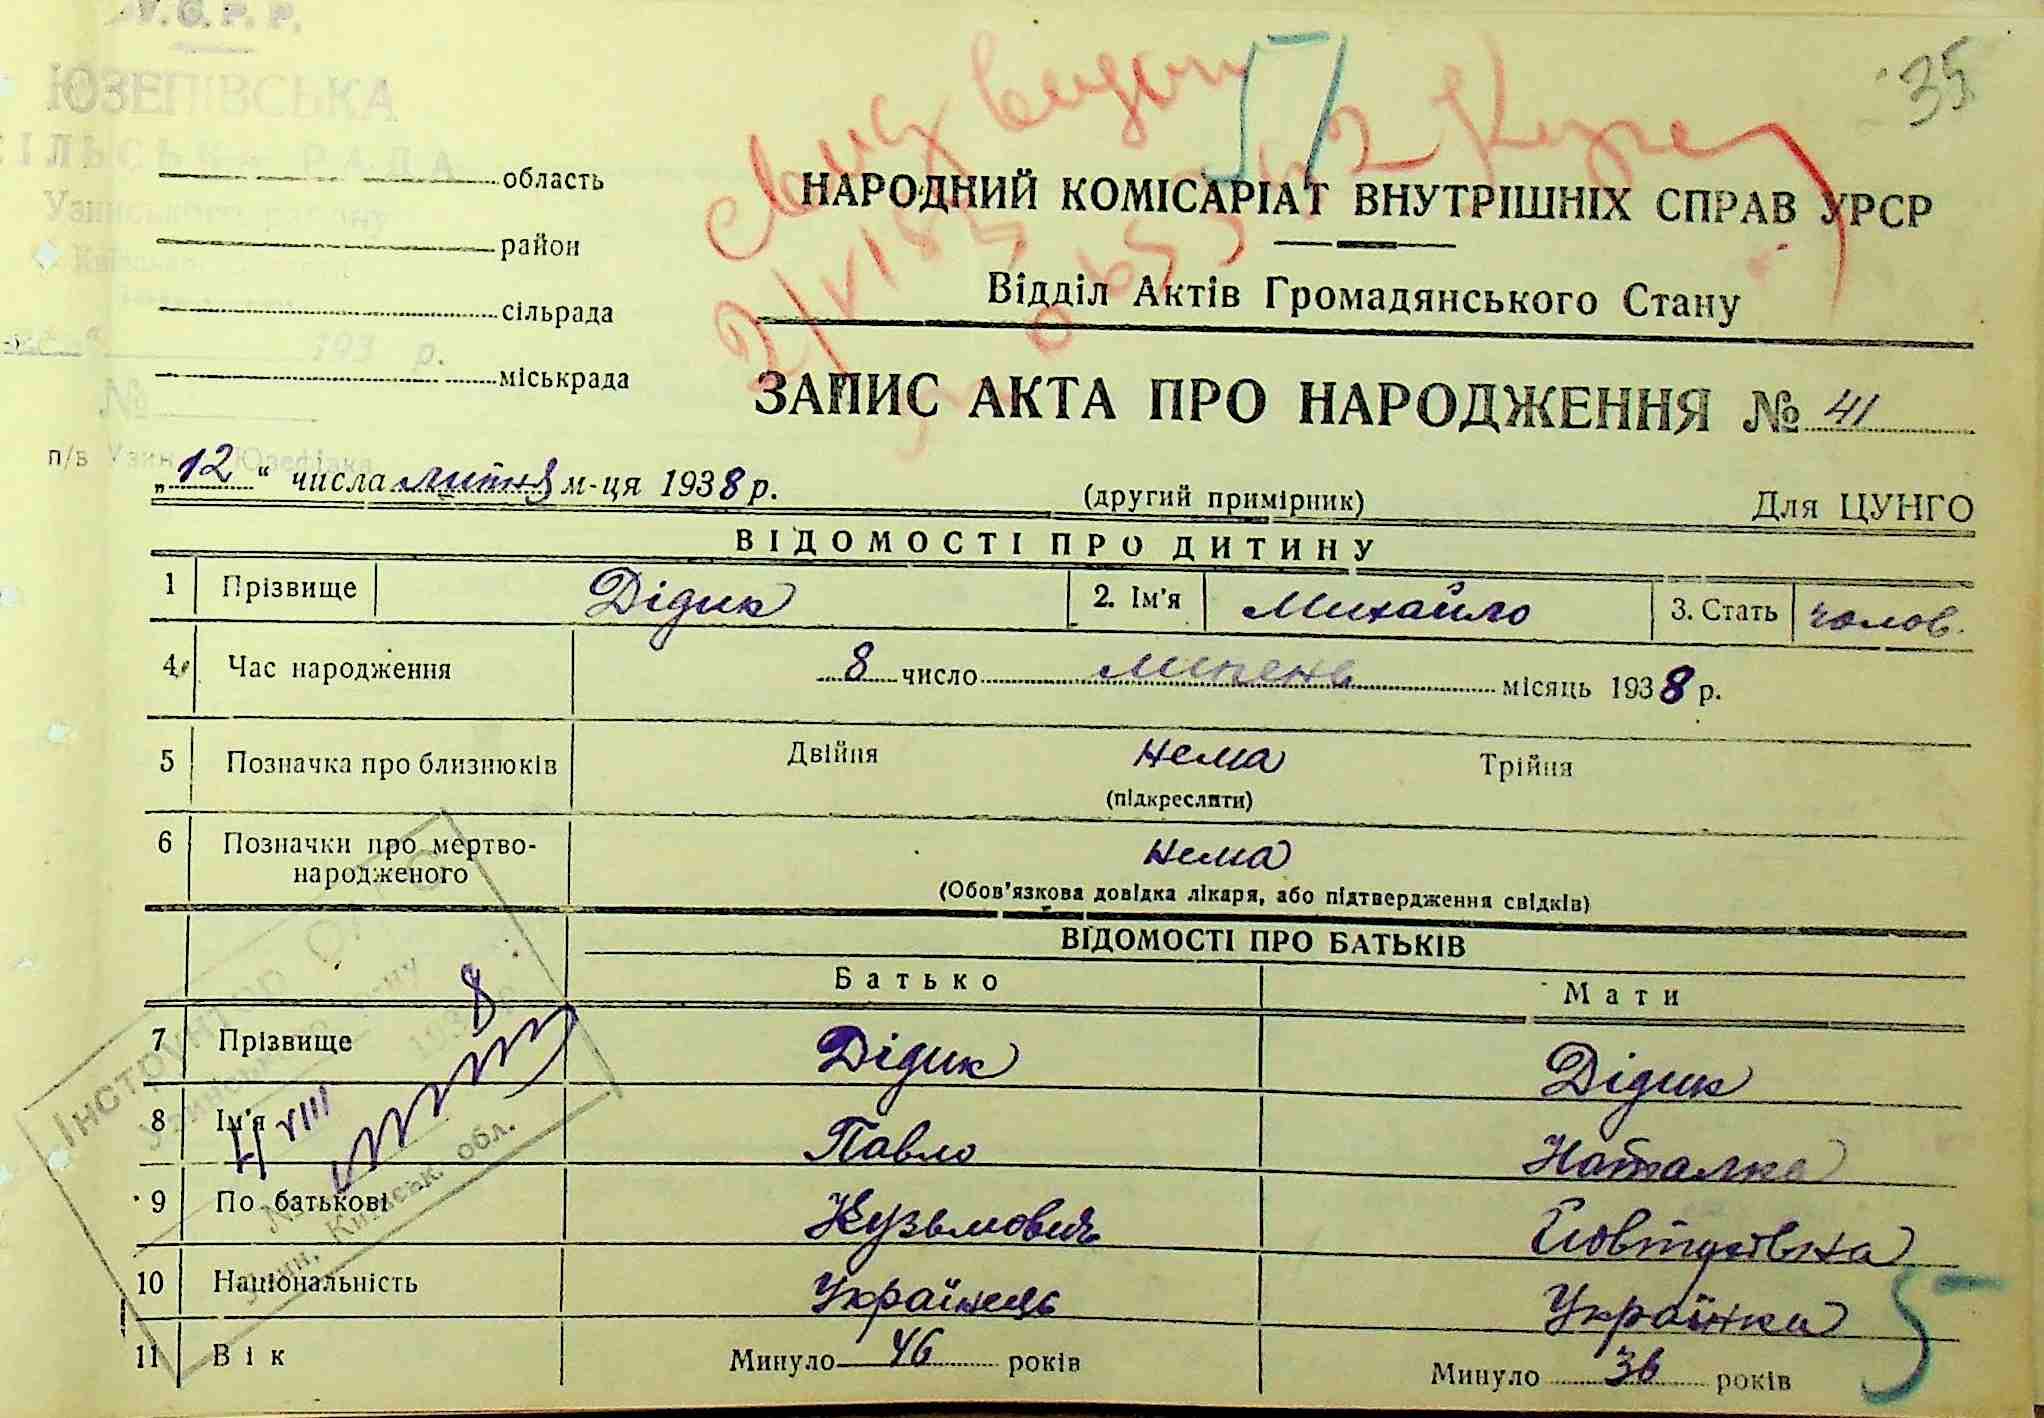 У.С.Р.Р.
ЮЗЕПІВСЬКА
СІЛЬСЬКА РАДА
Узинського району
193 р.
№
п/в Узин Юзефівка
35
область
район
сільрада
міськрада
НАРОДНИЙ КОМІСАРІАТ ВНУТРІШНІХ СПРАВ УРСР
Відділ Актів Громадянського Стану
ЗАПИС АКТА ПРО НАРОДЖЕННЯ № 41
„12“ числа липня м-ця 1938 р. (другий примірник) Для ЦУНГО
ВІДОМОСТІ ПРО ДИТИНУ
1 Прізвище Дідик 2. Ім'я Михайло 3. Стать чолов.
4 Час народження 8 число липень місяць 1938 р.
5 Позначка про близнюків Двійня нема Трійня
(підкреслити)
6 Позначки про мертво-
народженого нема
(Обов'язкова довідка лікаря, або підтвердження свідків)
ВІДОМОСТІ ПРО БАТЬКІВ
Батько Мати
7 Прізвище Дідик Дідик
8 Ім'я Павло Наталка
9 По батькові Кузьмович
10 Національність Українець Українка
11 Вік Минуло 46 років Минуло 36 років
Інструктор ОАГС
Узинського району
1938
4 VIII
№
Узин, Київськ. обл.
5